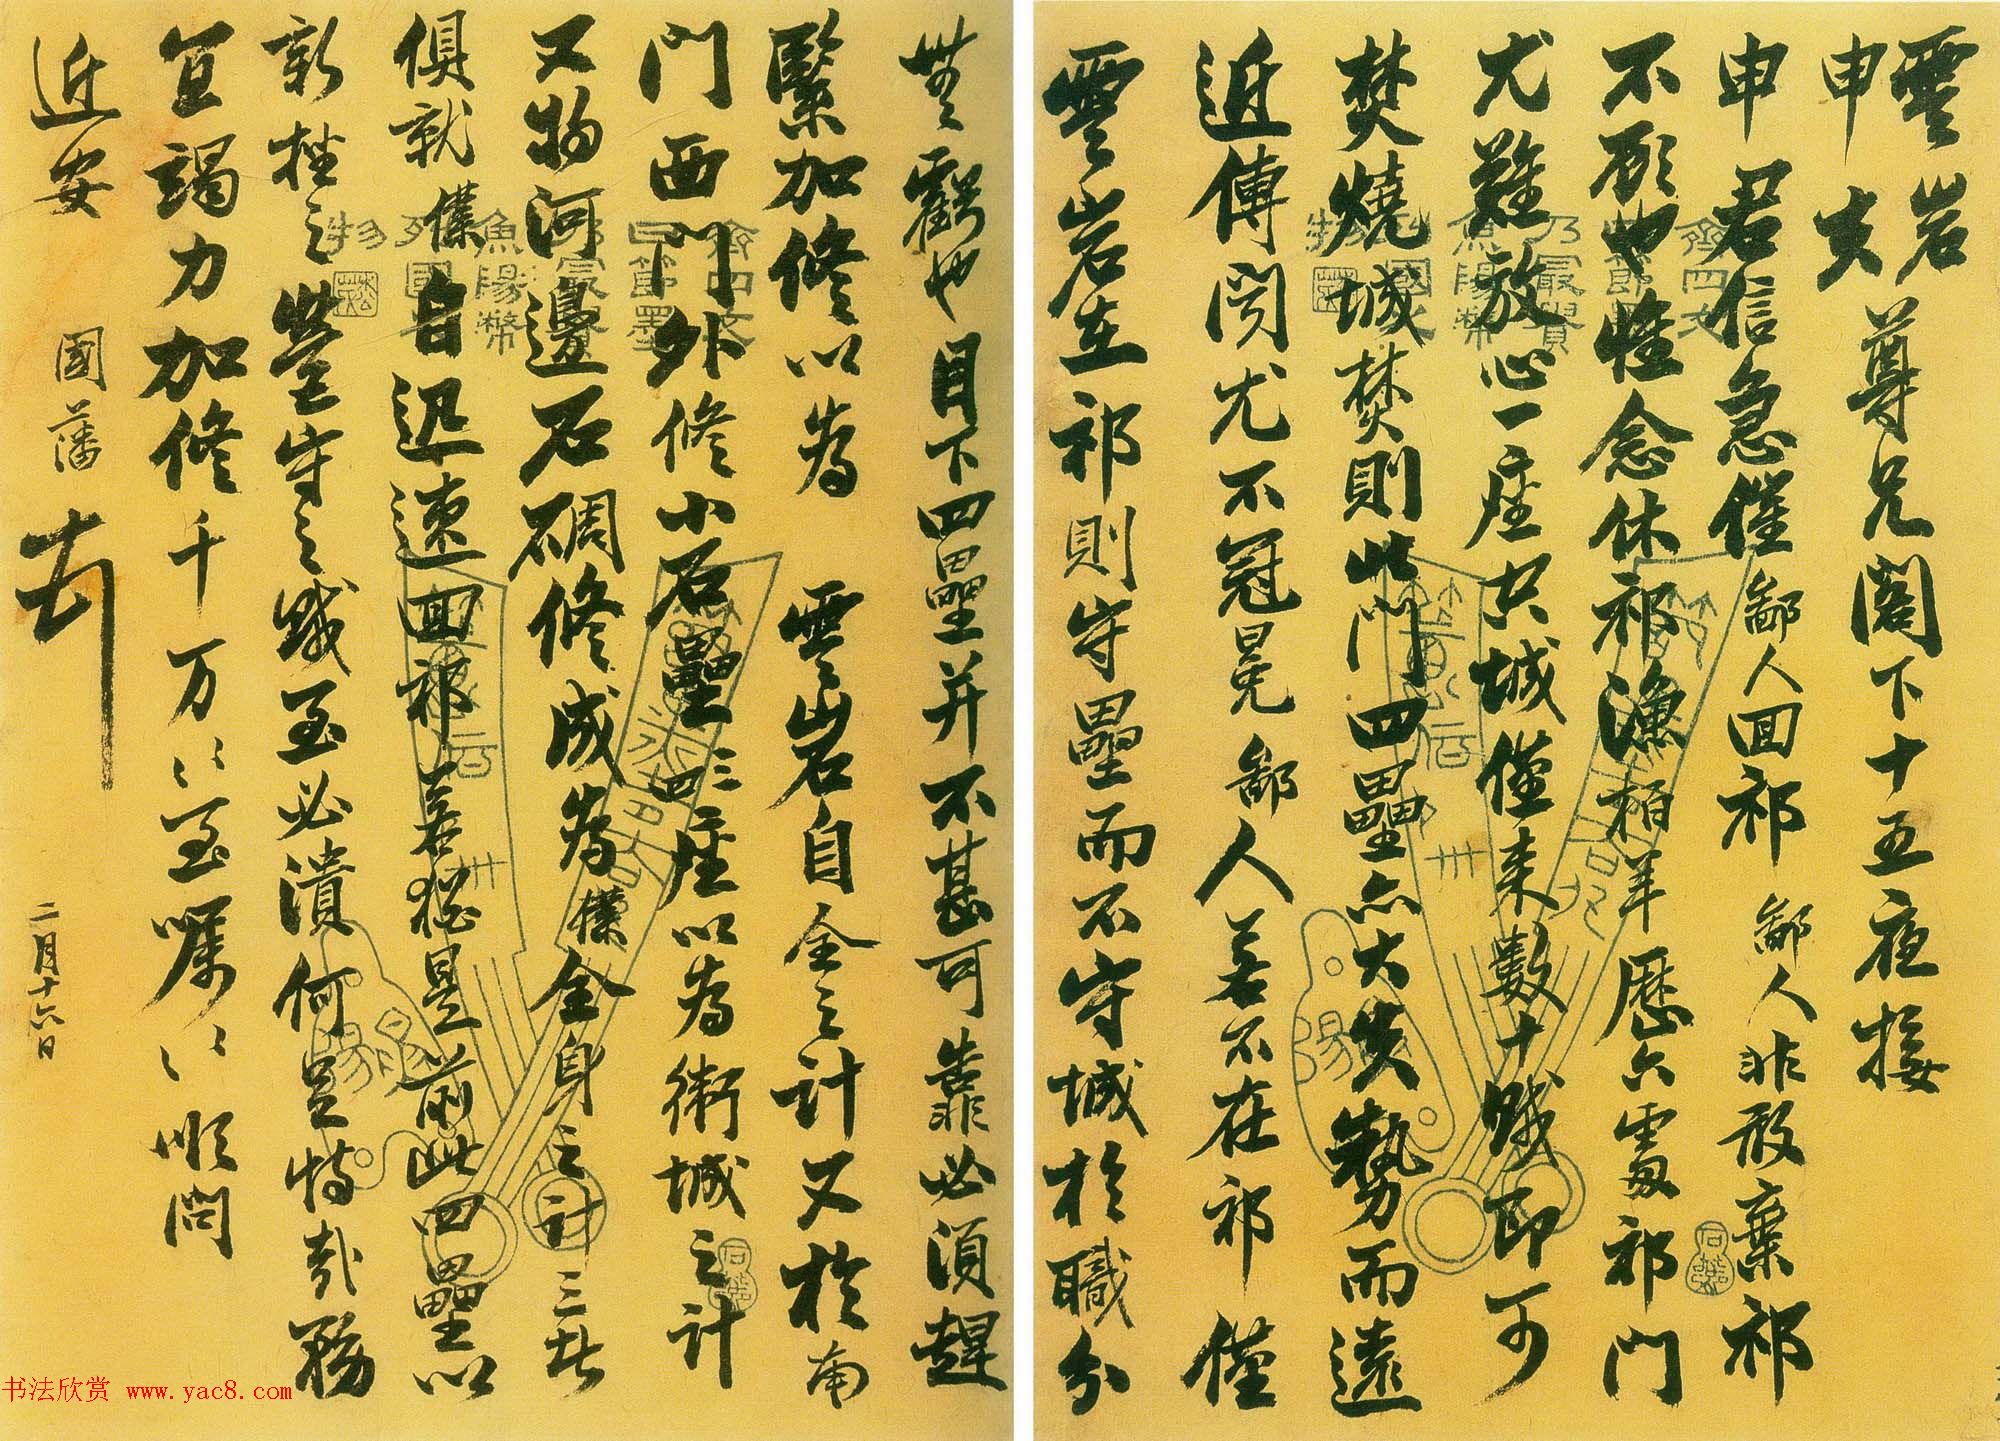 雲岩
申夫尊兄閣下十五夜接
申君信急催鄙人回祁鄙人非敢棄祁
不顧也惟念休祁漁栢羊歷六處祁門
尤難放心一座空城僅來數十賊即可
焚燒城焚則此門四壘亦大失勢而遠
近傳聞尤不冠冕鄙人若不在祁僅
雲岩在祁則守壘而不守城於職分
無虧也目下四壘并不甚可靠必須趕
緊加修以為雲岩自全之計又於南
門西門外修小石壘三四座以為衛城之計
又物河邊石碉修成為僕全身之計三者
俱就僕自迅速回祁若猶是前此四壘以
新挫之營守之賊至必潰何足恃哉務
宜竭力加修千万〻〻至囑〻〻順問
近安 國藩
二月十六日
齊四文
魚陽幣
列國
物
书法欣赏 www.yac8.com